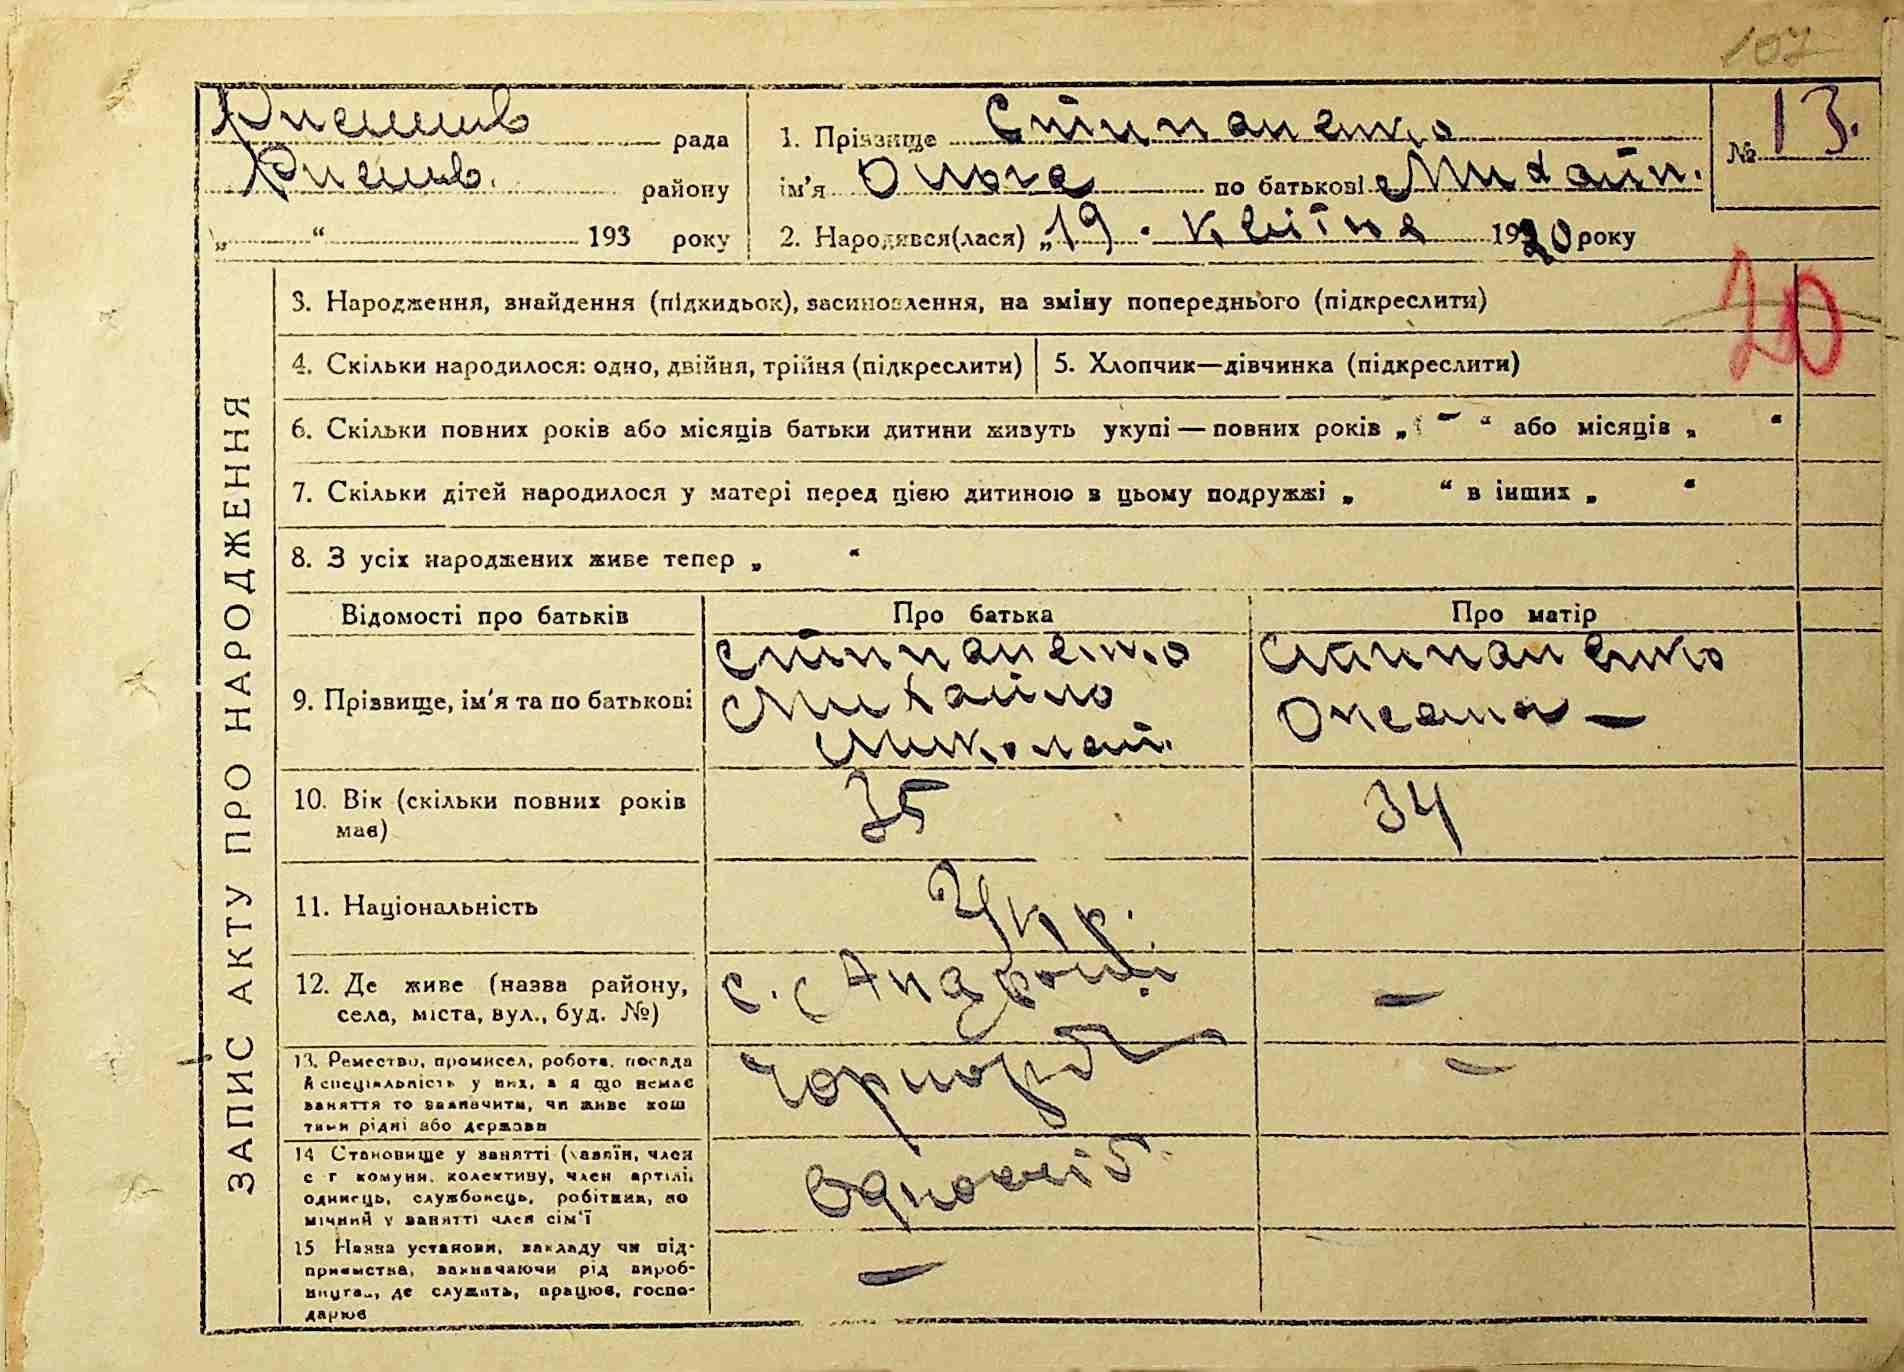 107
Ржищив рада
Ржищив. району
„ “ 193 року
1. Прізвище Стіпаненко
ім'я Ольга по батькові Михайл.
№ 13.
2. Народився(лася) „19. Квітня 1920 року
20
ЗАПИС АКТУ ПРО НАРОДЖЕННЯ
3. Народження, знайдення (підкидьок), засиновлення, на зміну попереднього (підкреслити)
4. Скільки народилося: одно, двійня, трійня (підкреслити)
5. Хлопчик—дівчинка (підкреслити)
6. Скільки повних років або місяців батьки дитини живуть укупі — повних років „ – “ або місяців „ “
7. Скільки дітей народилося у матері перед цією дитиною в цьому подружжі „ “ в інших „ “
8. З усіх народжених живе тепер „ “
Відомості про батьків
Про батька
Про матір
9. Прізвище, ім'я та по батькові
Стіпаненко
Михайло
Миколай.
Стіпаненко
Оксана –
10. Вік (скільки повних років
має)
35
34
11. Національність
Укр.
12. Де живе (назва району,
села, міста, вул., буд. №)
с.
–
13. Ремество, промисел, робота, посада
й спеціяльність у них, а якщо немає
заняття то зазначити, чи живе кош
тами рідні або держави
Чорнороб
–
14 Становище у занятті (хазяїн, член
с г комуни, колективу, член артілі,
одинець, службовець, робітник, по
мічний у занятті член сім'ї
Одноосіб.
15 Назва установи, закладу чи під-
приємства, зазначаючи рід вироб-
ництва, де служить, працює, госпо-
дарює
–